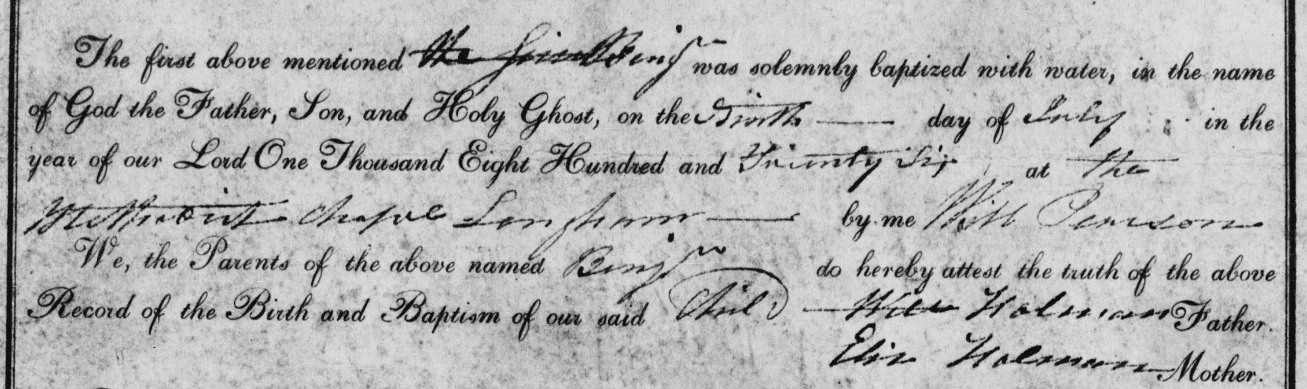 The first above mentioned Benjn was solemnly baptized with water, in the name
of God the Father, Son, and Holy Ghost, on the Ninth day of July in the
year of our Lord One Thousand Eight Hundred and Twenty Six at the
Methodist Chapel Langham by me Will Pearson
We, the Parents of the above named Benjn do hereby attest the truth of the above
Record of the Birth and Baptism of our said Child Will Holman Father.
Eliz Holman Mother.